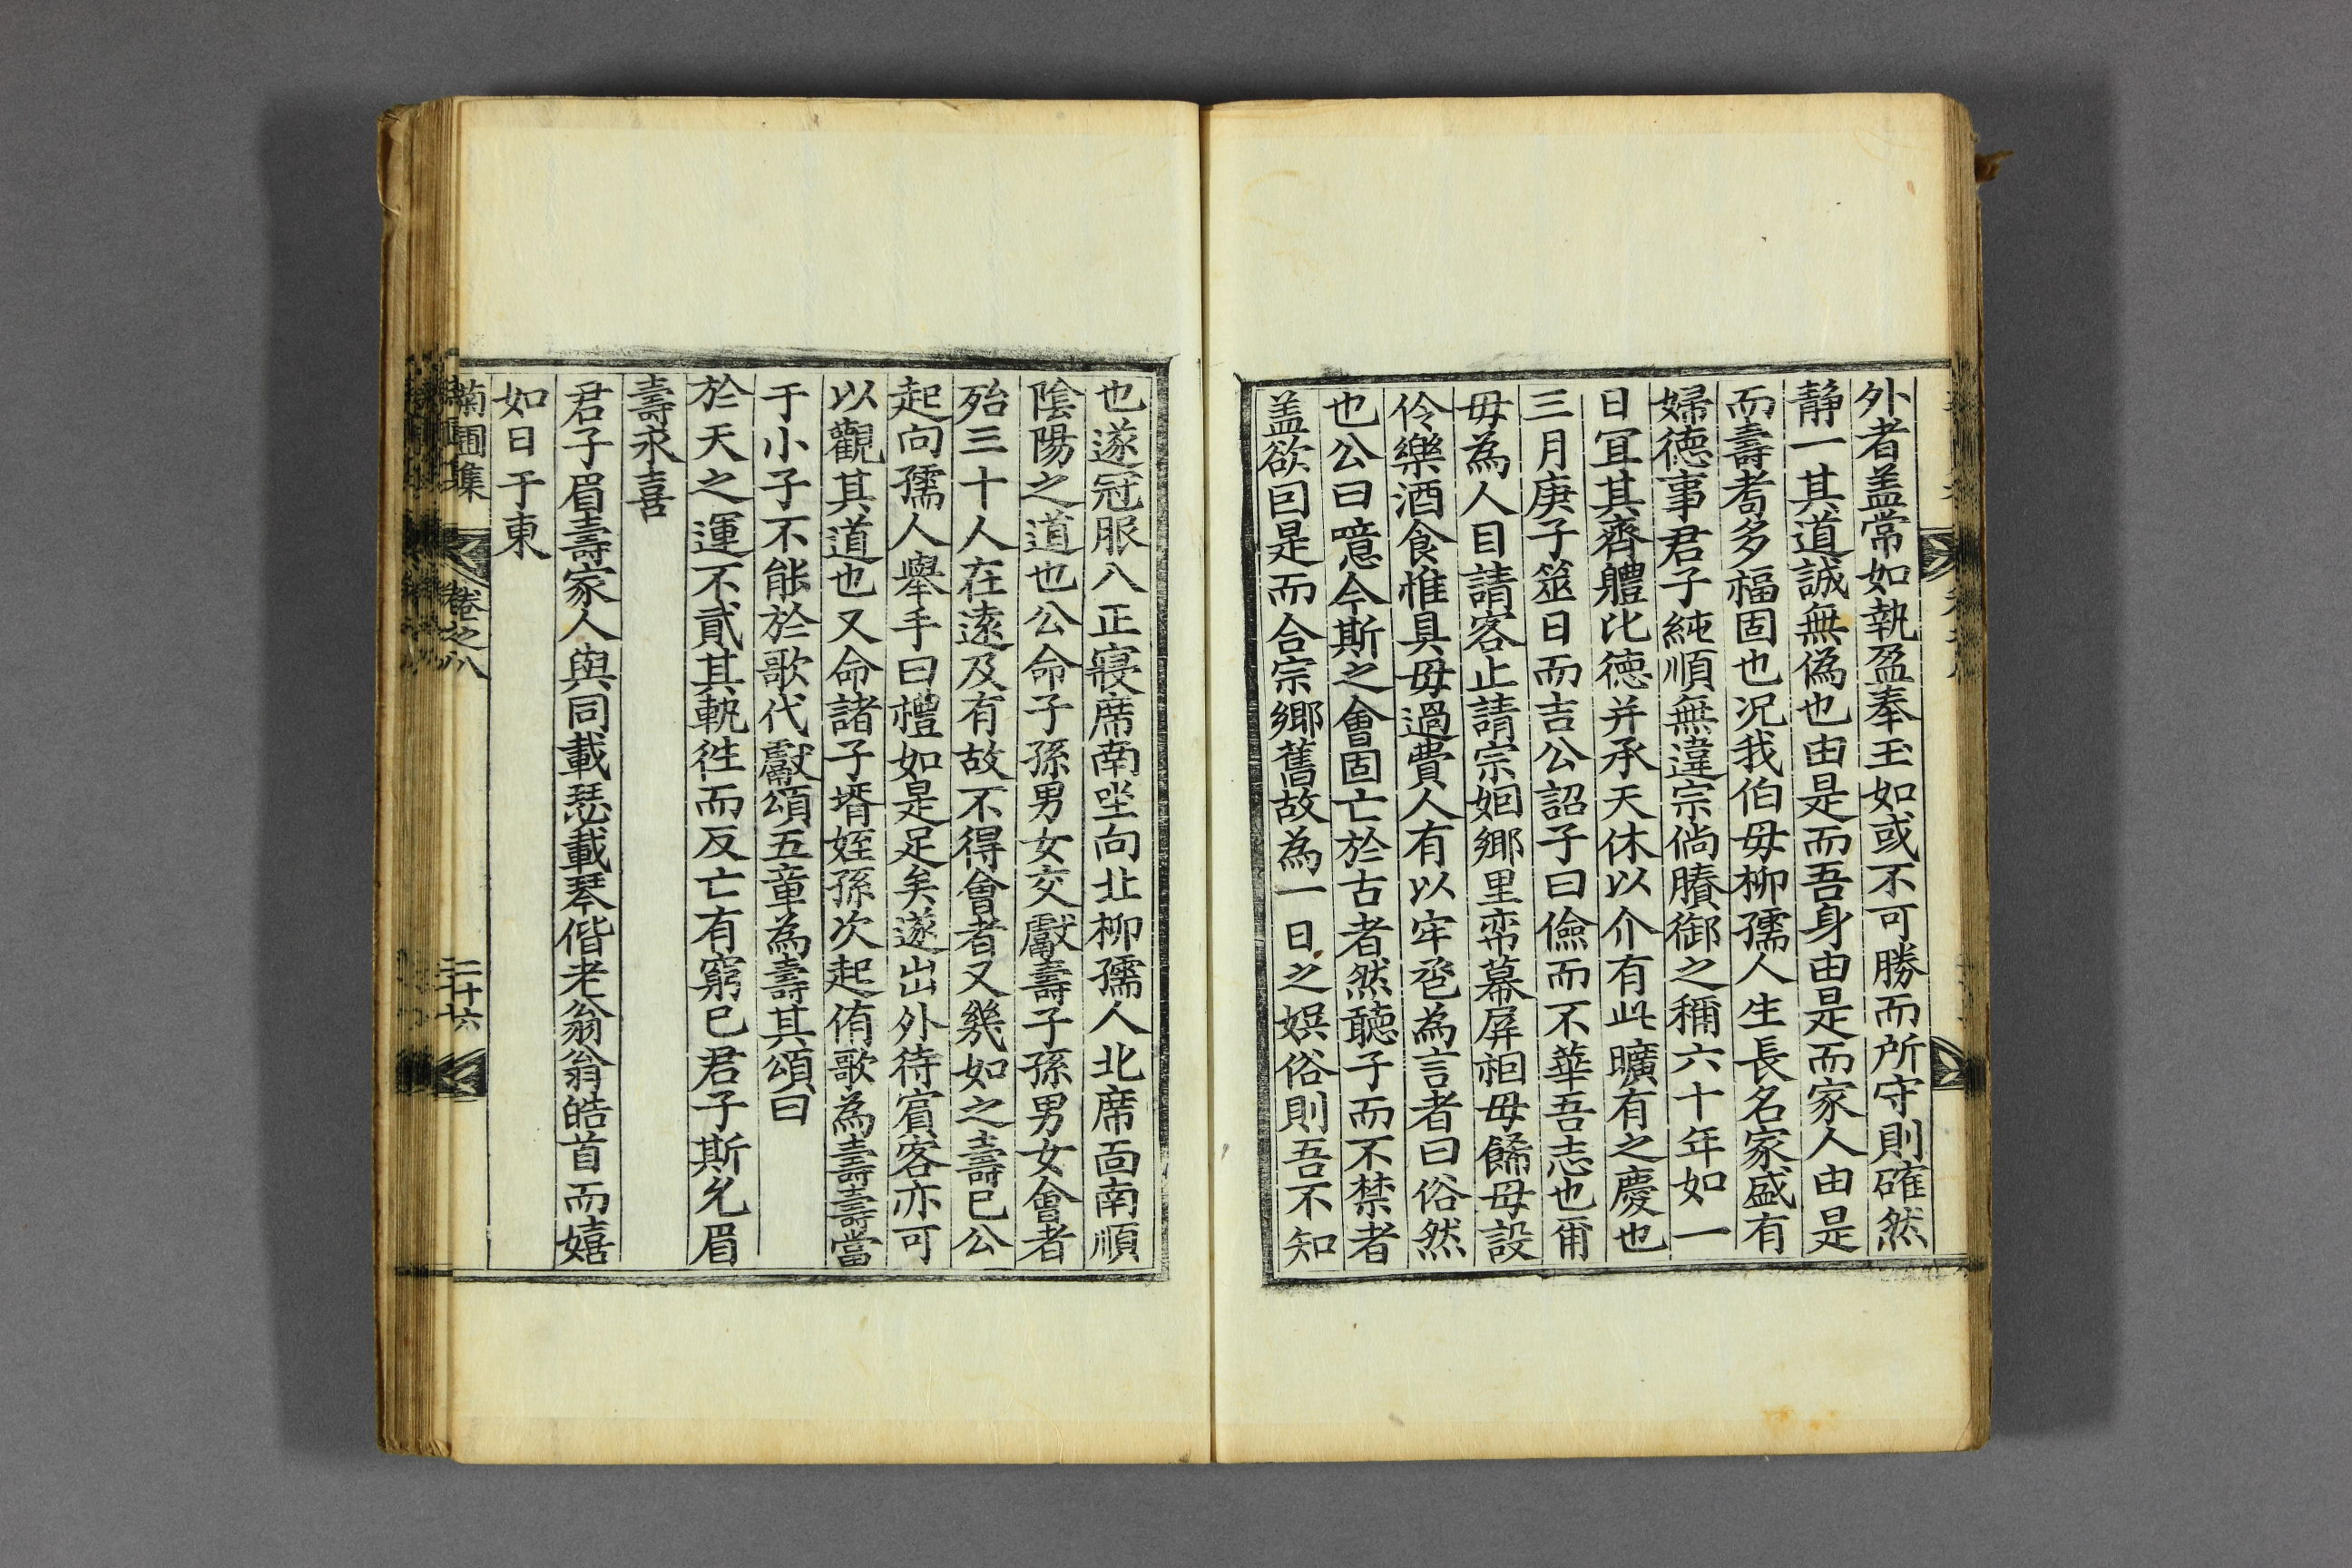 外者盖常如執盈奉玉如或不可勝而所守則確然
静一其道誠無偽也由是而吾身由是而家人由是
而壽耈多福固也况我伯母柳孺人生長名家盛有
婦德事君子純順無違宗倘賸御之稱六十年如一
日宜其齊軆比德并承天休以介有此曠有之慶也
三月庚子筮日而吉公詔子曰儉而不華吾志也爾
毋為人目請客止請宗姻鄉里帟幕屏袒毋餙毋設
伶樂酒食惟具毋過費人有以牢卺為言者曰俗然
也公曰噫今斯之會固亡於古者然聽子而不禁者
盖欲因是而合宗鄉舊故為一日之娱俗則吾不知
也遂冠服八正寢席南坐向北柳孺人北席面南順
陰陽之道也公命子孫男女交獻壽子孫男女會者
殆三十人在遠及有故不得會者又幾如之壽已公
起向孺人舉手曰禮如是足矣遂出外待賓客亦可
以觀其道也又命諸子壻姪孫次起侑歌為壽壽當
于小子不能於歌代獻頌五章為壽其頌曰
於天之運不貳其軌徃而反亡有窮已君子斯允眉
壽求喜
君子眉壽家人與同載瑟載琴偕老翁翁皓首而嬉
如日于東
蘭圃集 卷之八 二十六